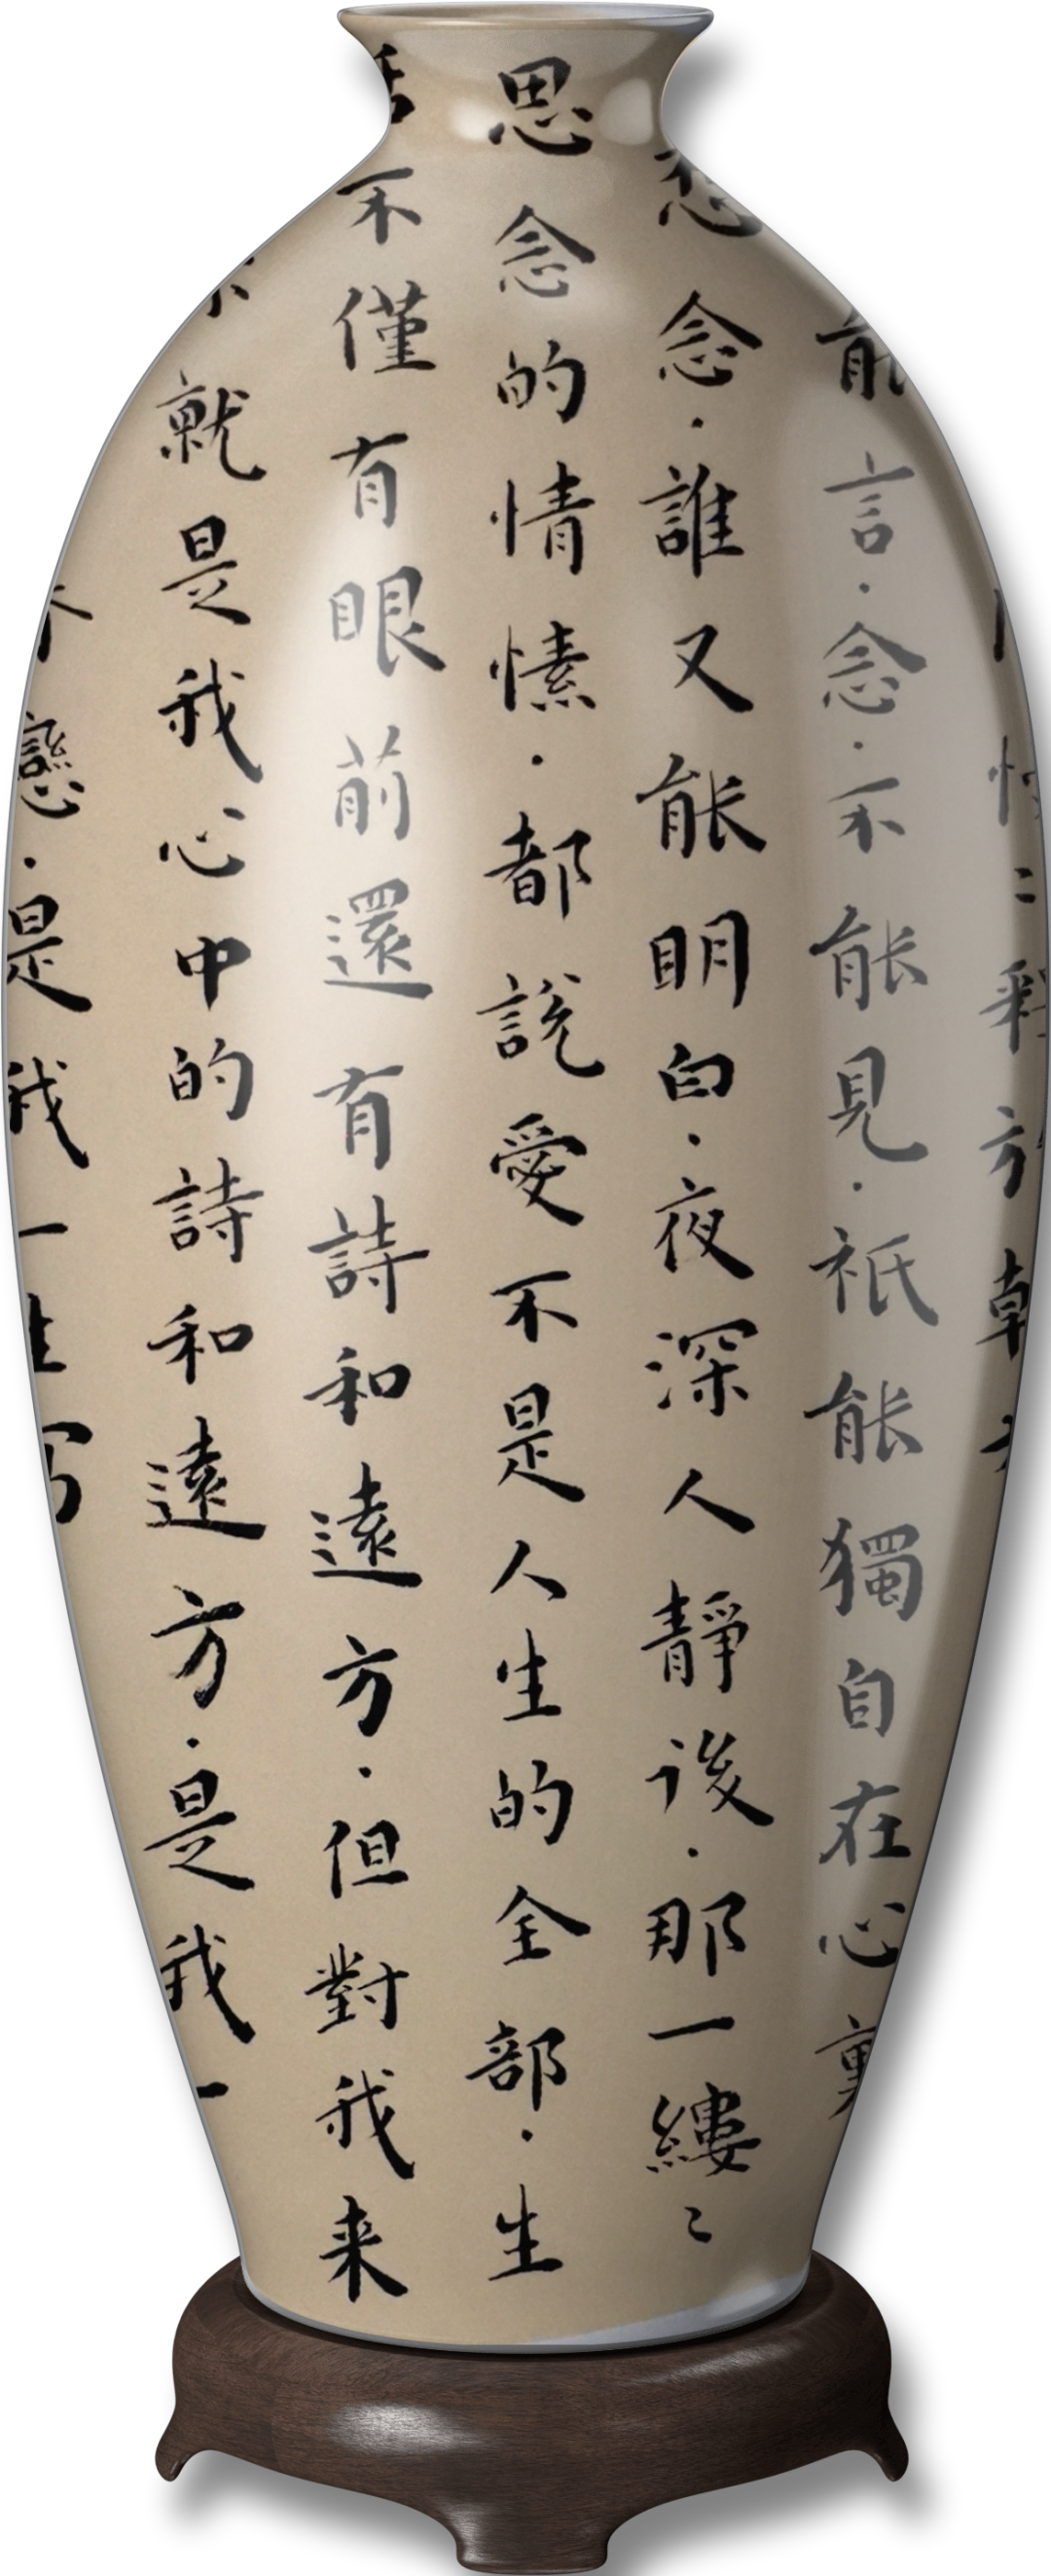 情〻釋方朝
能言·念·不能見·祇能獨自在心裏
想念·誰又能明白·夜深人靜後·那一縷〻
思念的情愫·都說愛不是人生的全部·生
活不僅有眼前還有詩和遠方·但對我来
来就是我心中的詩和遠方·是我一
戀·是我一生